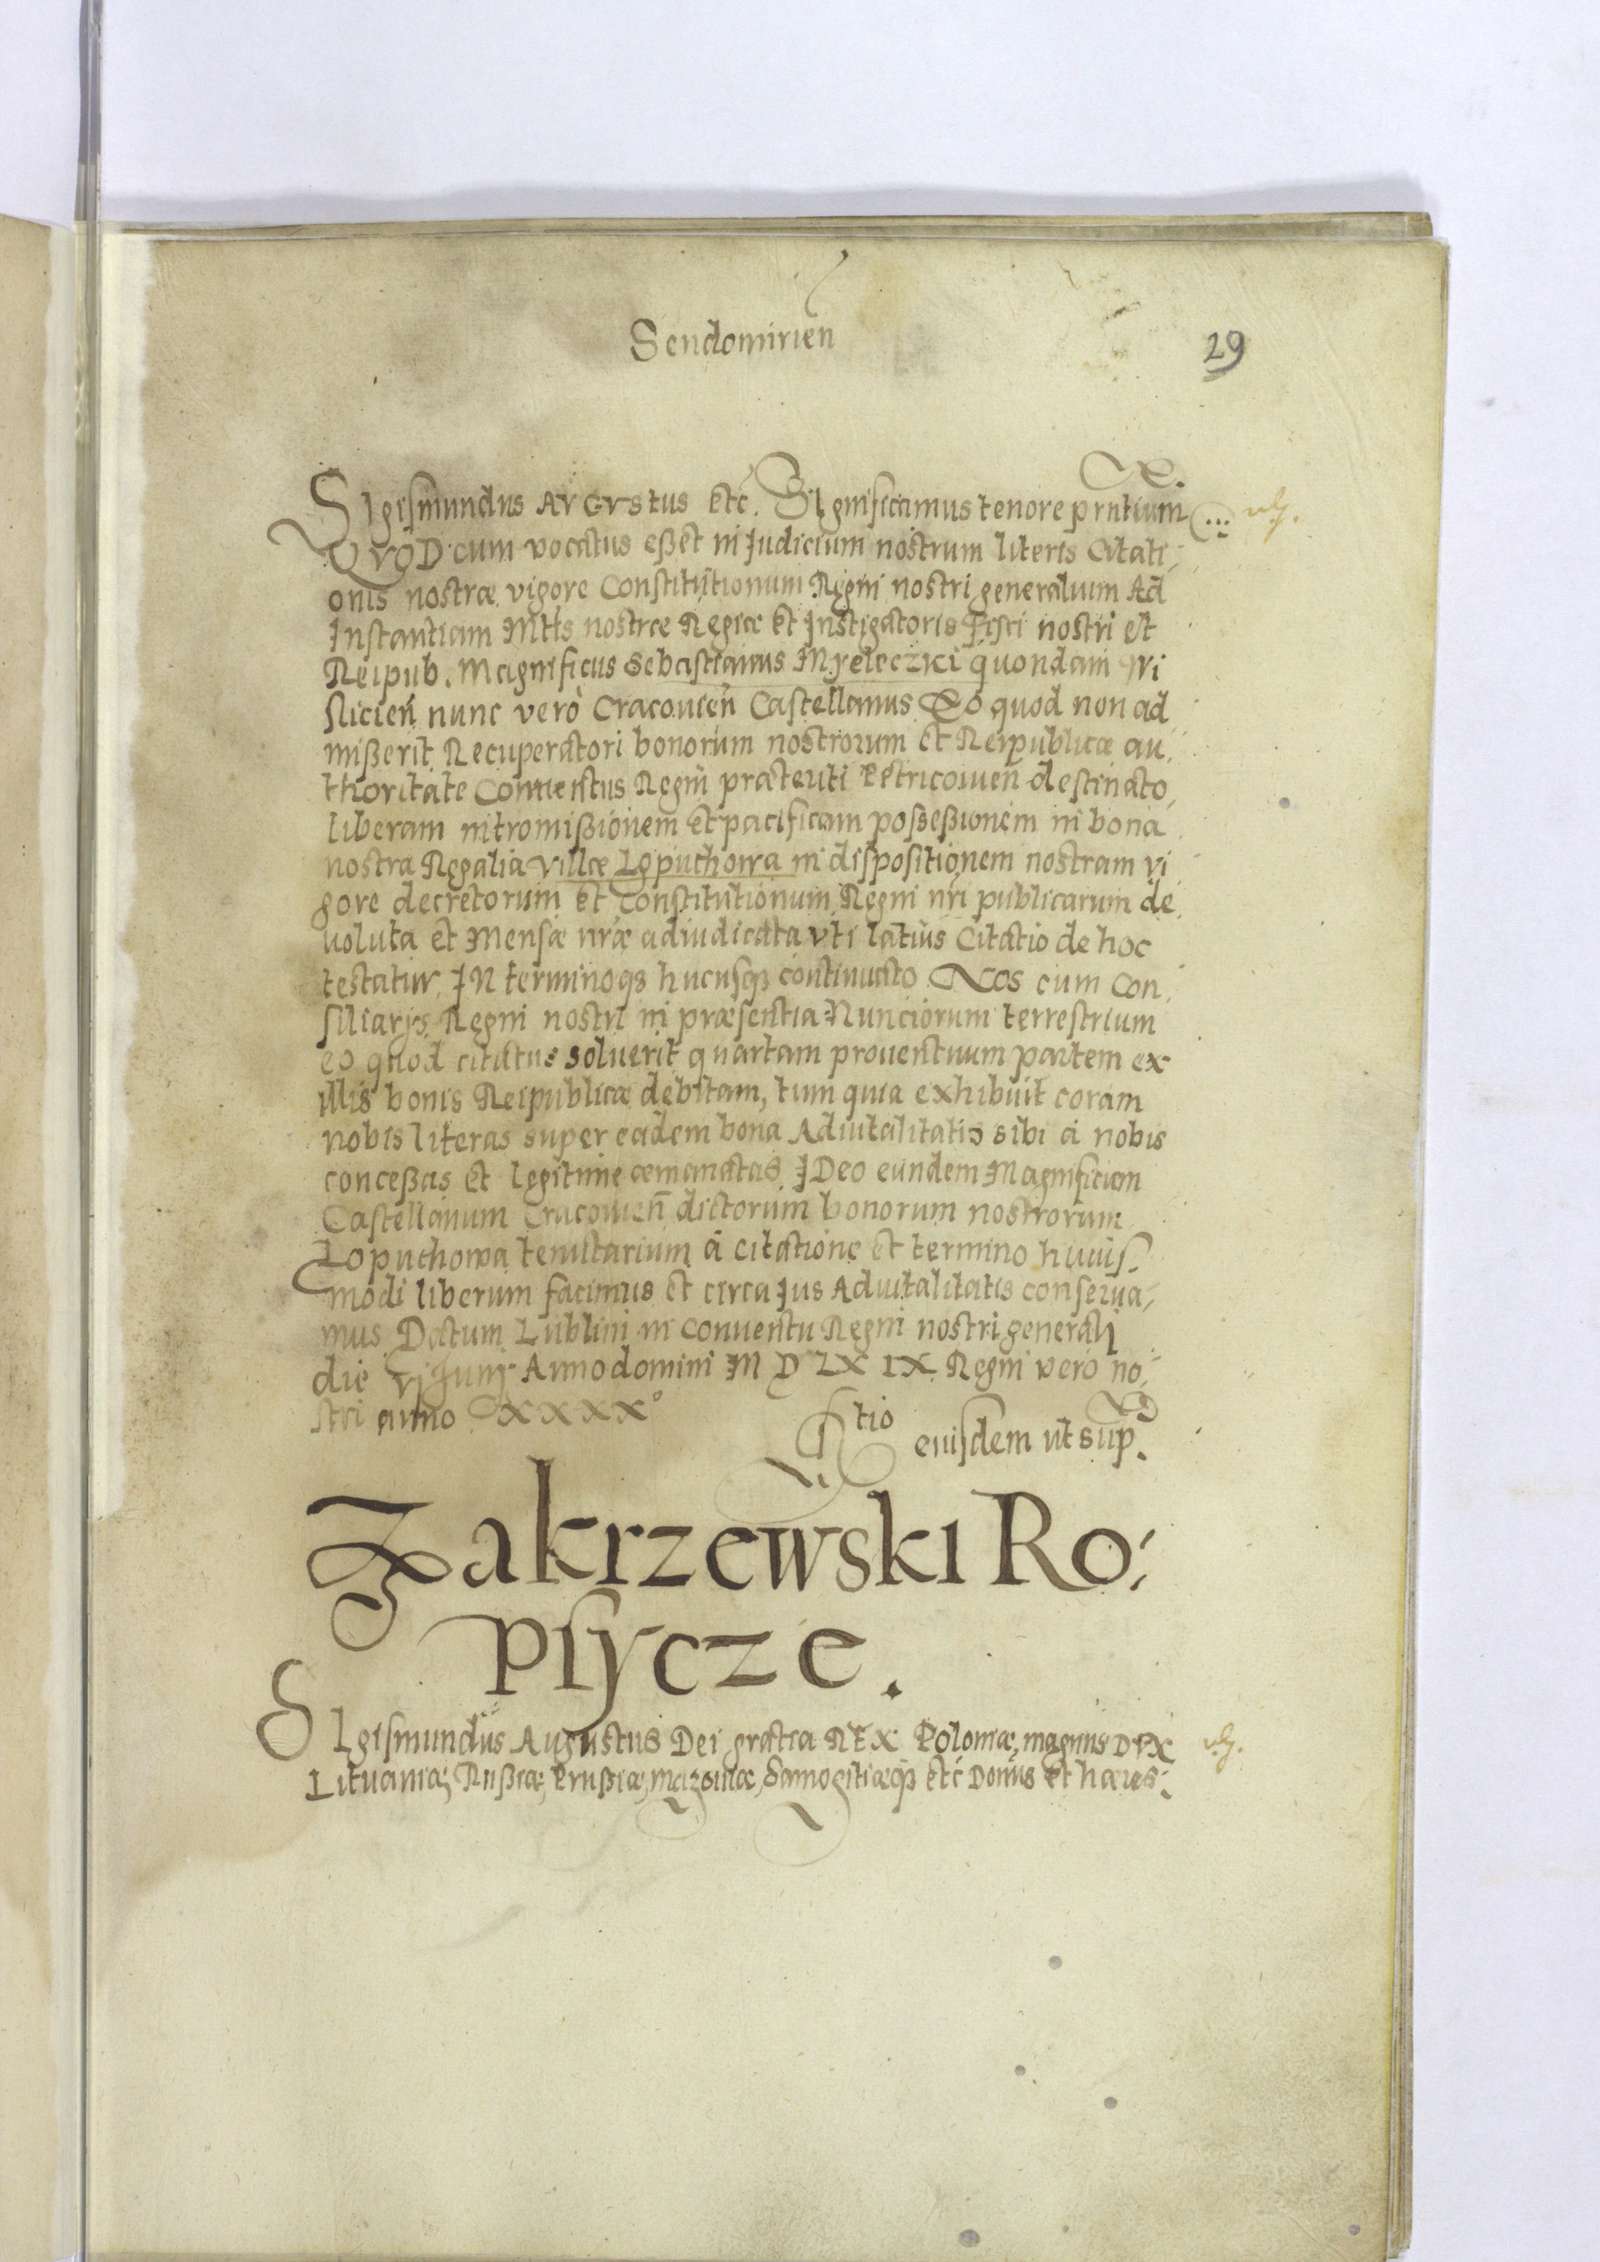 Sendomirien
29
Sigismundus Avgvstus etc. Significamus tenore prntium
Qvod cum vocatus eßet in Judicium nostrum literis Citati-
onis nostræ vigore Constitutionum Regni nostri generalium Ad
Instantiam Mttis nostræ Regiæ et Instigatoris Fisci nostri et
Reipub. Magnificus Sebastianus Myeleczki quondam Wi
slicien nunc verò Cracouien Castellanus Eo quod non ad
mißerit Recuperatori bonorum nostrorum et Reipublicæ au-
thoritate Conuentus Regni præteriti Petricouien destinato,
liberam intromißionem et pacificam posseßionem in bona
nostra Regalia villæ Lopuchowa in dispositionem nostram vi
gore decretorum et Constitutionum Regni nri publicarum de
uoluta et Mensæ nræ adiudicata vti latius Citatio de hoc
testatur. In terminoqз hucusqз continuato Nos cum Con-
siliarys Regni nostri in præsentia Nunciorum terrestrium
eo quod citatus soluerit quartam prouentuum partem ex
illis bonis Reipublicæ debitam, tum quia exhibuit coram
nobis literas super eadem bona Aduitalitatis sibi à nobis
conceßas et legitime æmanatas. IDeo eundem Magnificum
Castellanum Cracouien dictorum bonorum nostrorum
Lopuchowa tenutarium à citatione et termino huius-
modi liberum facimus et circa Jus Aduitalitatis conserua-
mus. Datum Lublini in Conuentu Regni nostri generali
die vi Junij Anno domini M D LX IX. Regni vero no-
stri anno XXXX°
Rtio eiusdem ut sup.
Zakrzewski Ro-
psycze.
Sigismundus Augustus Dei gratia REX Poloniæ, magnus DVX
Lituaniæ, Rußiæ, Prußiæ, Mazouiæ, Samogitiæqз etc Donus et hæres.